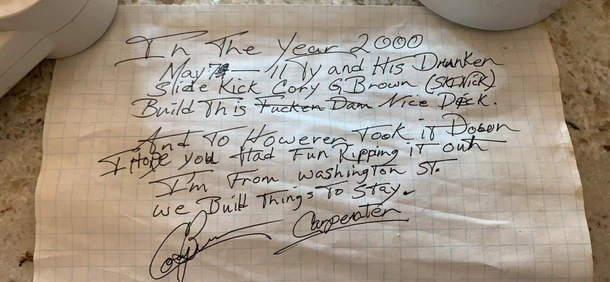 In The Year 2000
May 7 - 11 Ty and His Drunken
Slide Kick Cory G Brown (SKENICK)
Build This Fucken Dam Nice Dock.
And To Howeren Took it Down
I Hope you Had Fun Ripping it out
I'm From Washington St.
We Build Things To Stay.
Carpenter